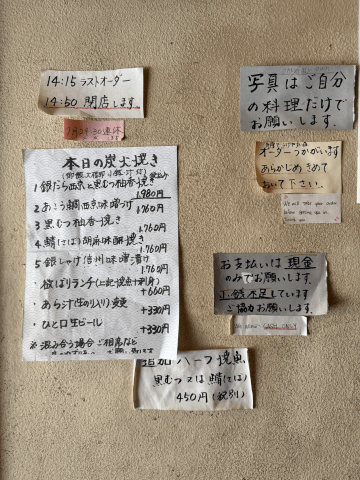 14:15 ラストオーダー
14:50 閉店します。
1月29.30連休
本日の炭火焼き
1 銀だら西京と黒むつ柚香焼き
1.980円
2 あこう鯛西京味噌漬け
1.760円
3 黒むつ柚香焼き
1.760円
4 鯖(さば)胡麻味醂焼き
1.760円
5 銀しゃけ信州味噌漬け
1.760円
・桜ばりランチ(上記焼魚+刺身)
+660円
・あら汁(生のり入り)変更
+330円
・ひと口生ビール
+330円
※混み合う場合ご相席など
追加ハーフ焼魚
黒むつ又は鯖(さば)
450円(税別)
写真はご自分
の料理だけで
お願いします。
オーダーうかがいます
あらかじめきめて
おいて下さい。
We will take your order
before seating you in.
Thank you
お支払いは現金
のみでお願いします。
小銭不足しています
ご協力お願いします。
CASH ONLY